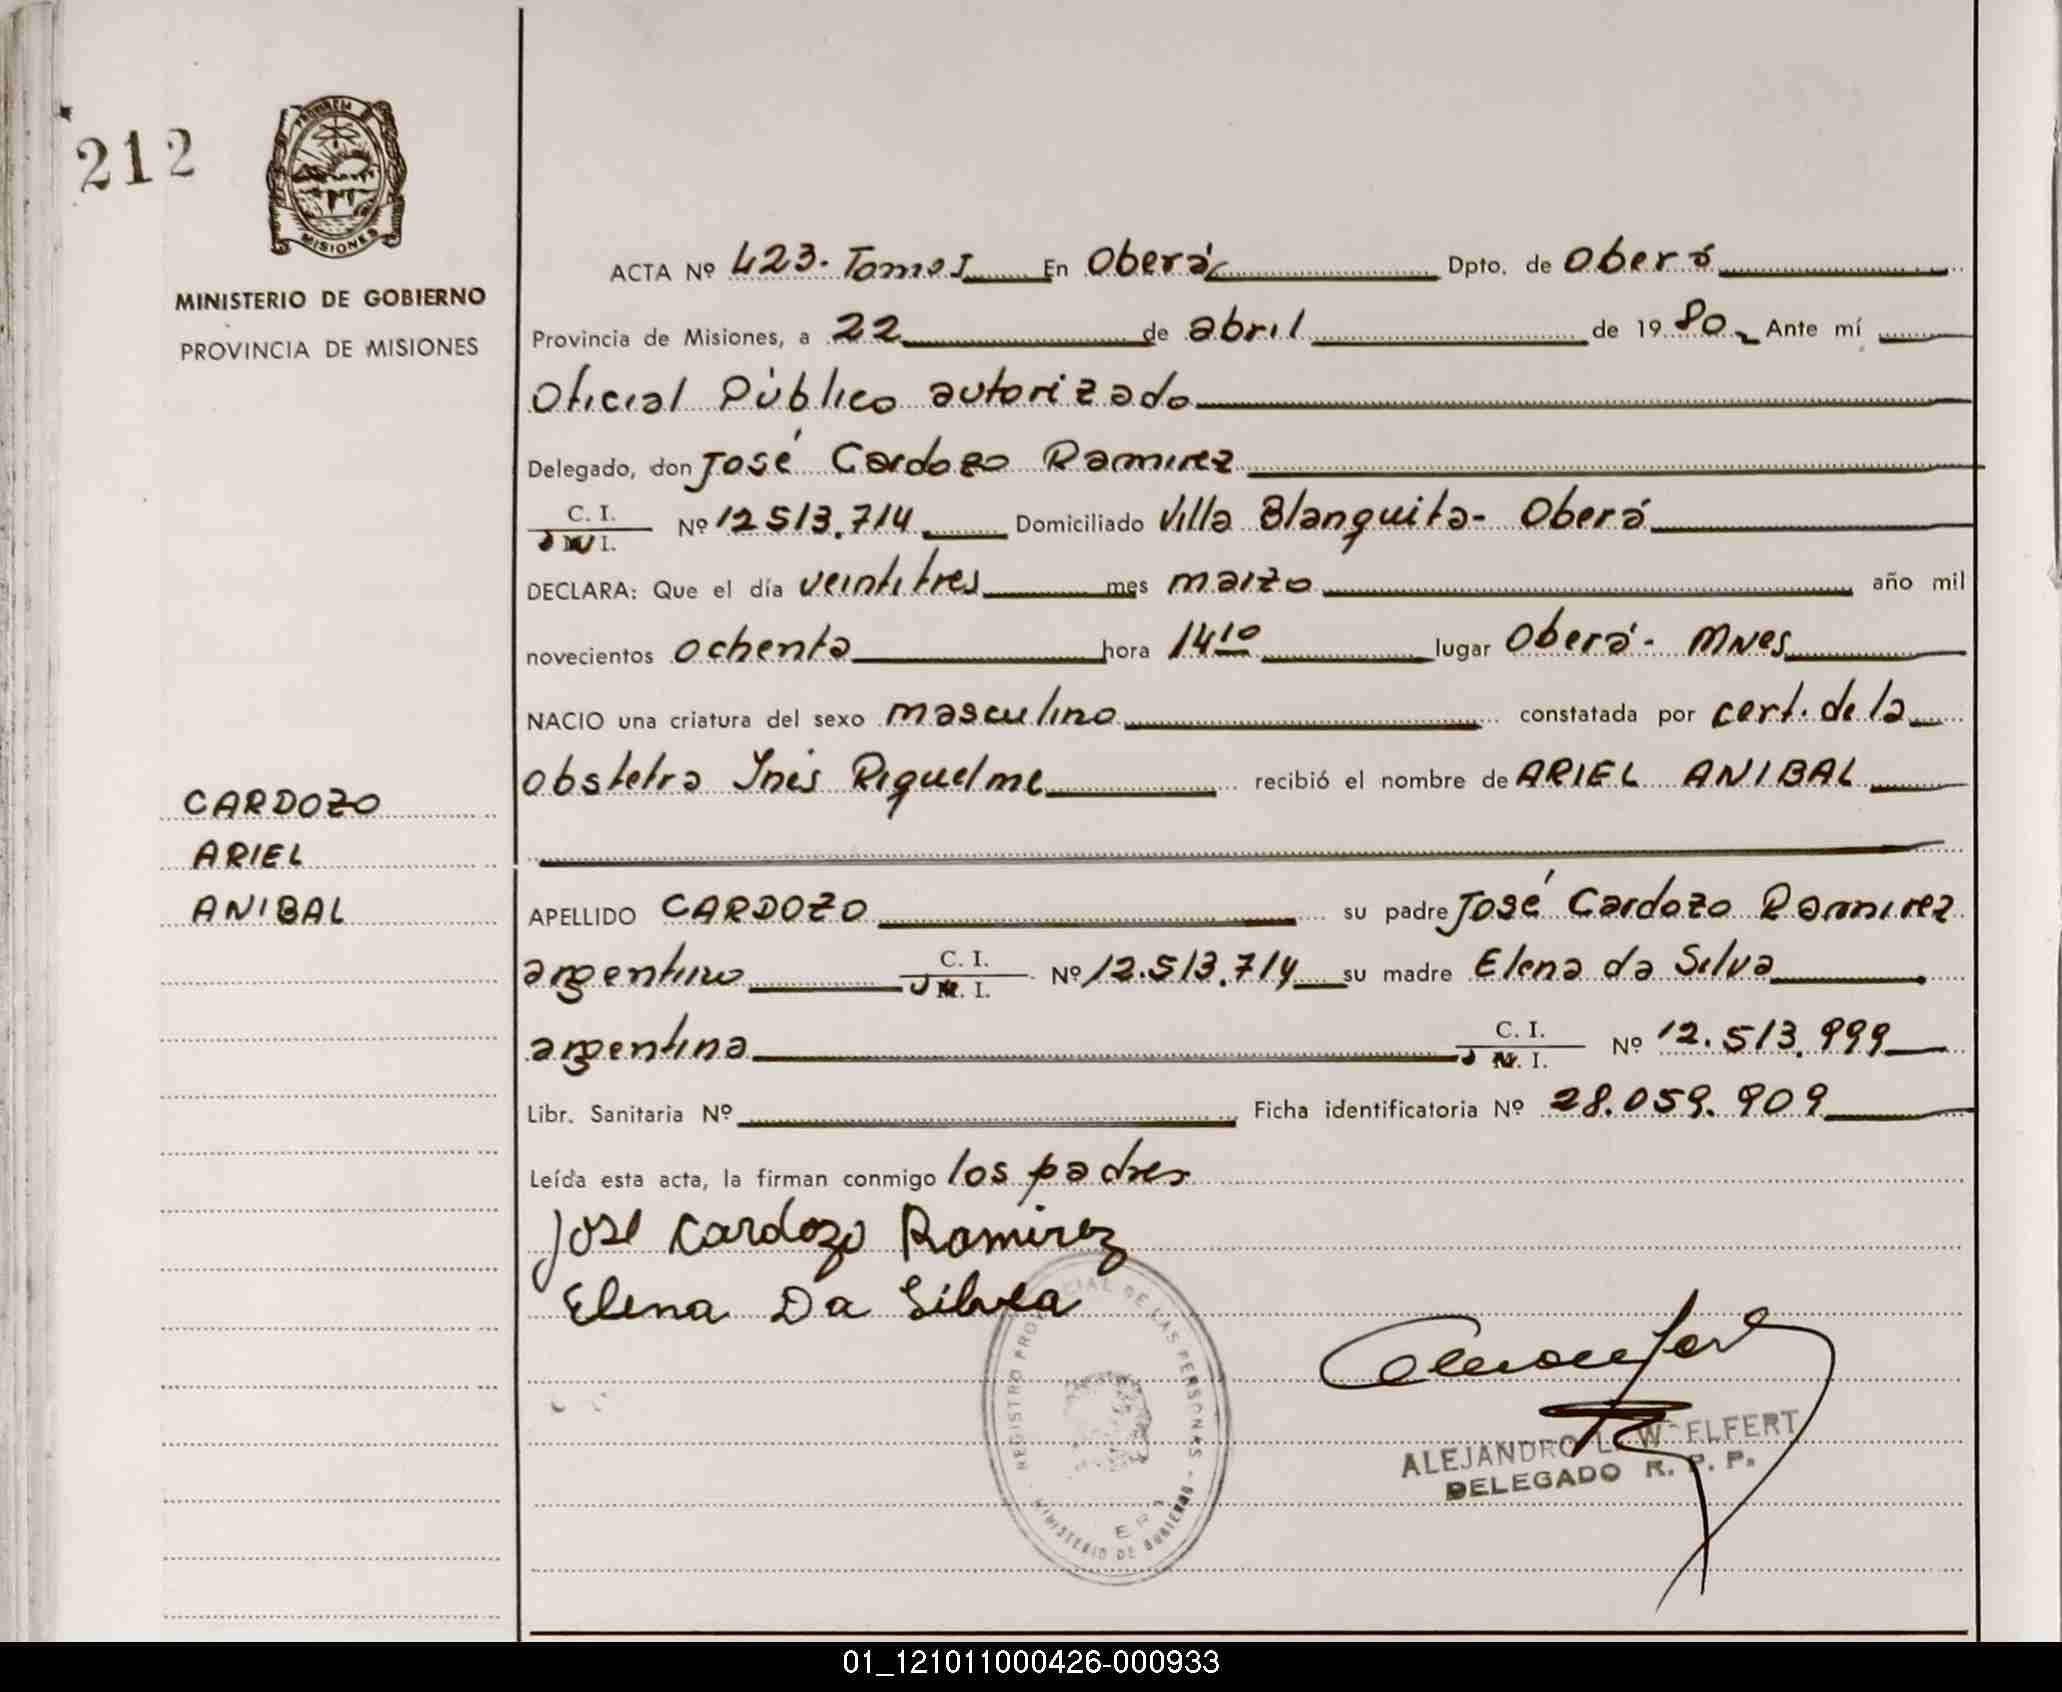 212
PROVINCIA
MISIONES
MINISTERIO DE GOBIERNO
PROVINCIA DE MISIONES
ACTA Nº 423. Tomo I En Oberá Dpto. de Oberá
Provincia de Misiones, a 22 de abril de 1980 Ante mí
Oficial Público autorizado
Delegado, don José Cardozo Ramirez
C. I.
Nº 12.513.714 Domiciliado Villa Blanquita - Oberá
DECLARA: Que el día veintitres mes marzo año mil
novecientos ochenta hora 14 10 lugar Oberá - Mnes
NACIO una criatura del sexo masculino constatada por cert. de la
obstetra Inés Riquelme recibió el nombre de ARIEL ANIBAL
CARDOZO
ARIEL
ANIBAL
APELLIDO CARDOZO su padre José Cardozo Ramirez
argentino C. I. Nº 12.513.714 su madre Elena da Silva
argentina C. I. Nº 12.513.999
Libr. Sanitaria Nº Ficha identificatoria Nº 28.059.909
Leída esta acta, la firman conmigo los padres
José Cardozo Ramirez
Elena Da Silva
REGISTRO PROVINCIAL DE LAS PERSONAS - MINISTERIO DE GOBIERNO
ALEJANDRO L.
DELEGADO R. P. P.
01_121011000426-000933